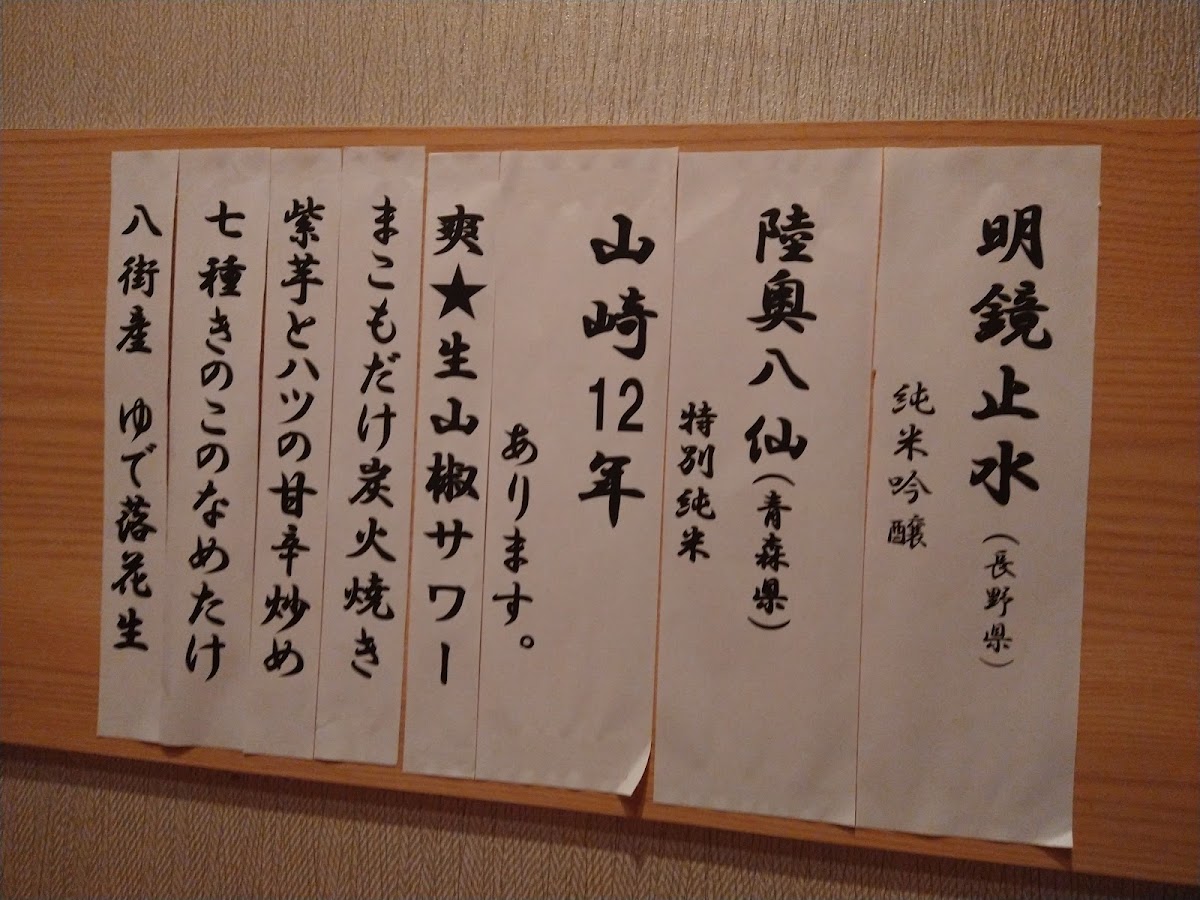 明鏡止水（長野県）
純米吟醸
陸奥八仙（青森県）
特別純米
山崎12年
あります。
爽★生山椒サワー
まこもだけ炭火焼き
紫芋とハツの甘辛炒め
七種きのこのなめたけ
八街産 ゆで落花生